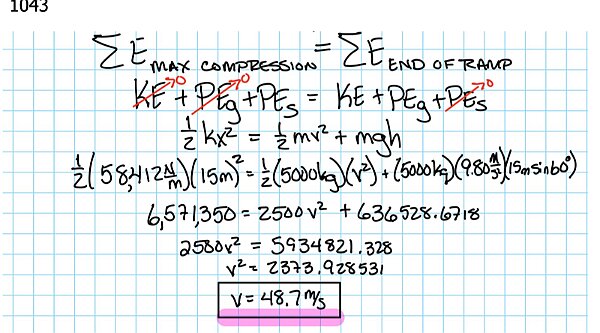 1043
ΣE MAX COMPRESSION = ΣE END OF RAMP
KE→0 + PEg→0 + PEs = KE + PEg + PEs→0
½kx² = ½mv² + mgh
½(58,412 N/m)(15m)² = ½(5000kg)(v²) + (5000kg)(9.80 m/s²)(15m sin60°)
6,571,350 = 2500v² + 636528.6718
2500v² = 5934821.328
v² = 2373.928531
V = 48.7 m/s